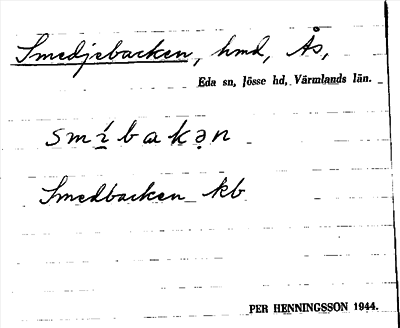 Smedjebacken, hmd, Ås,
Eda sn, Jösse hd, Värmlands län.
smí̱bakə̣n
Smedbacken kb
PER HENNINGSSON 1944.